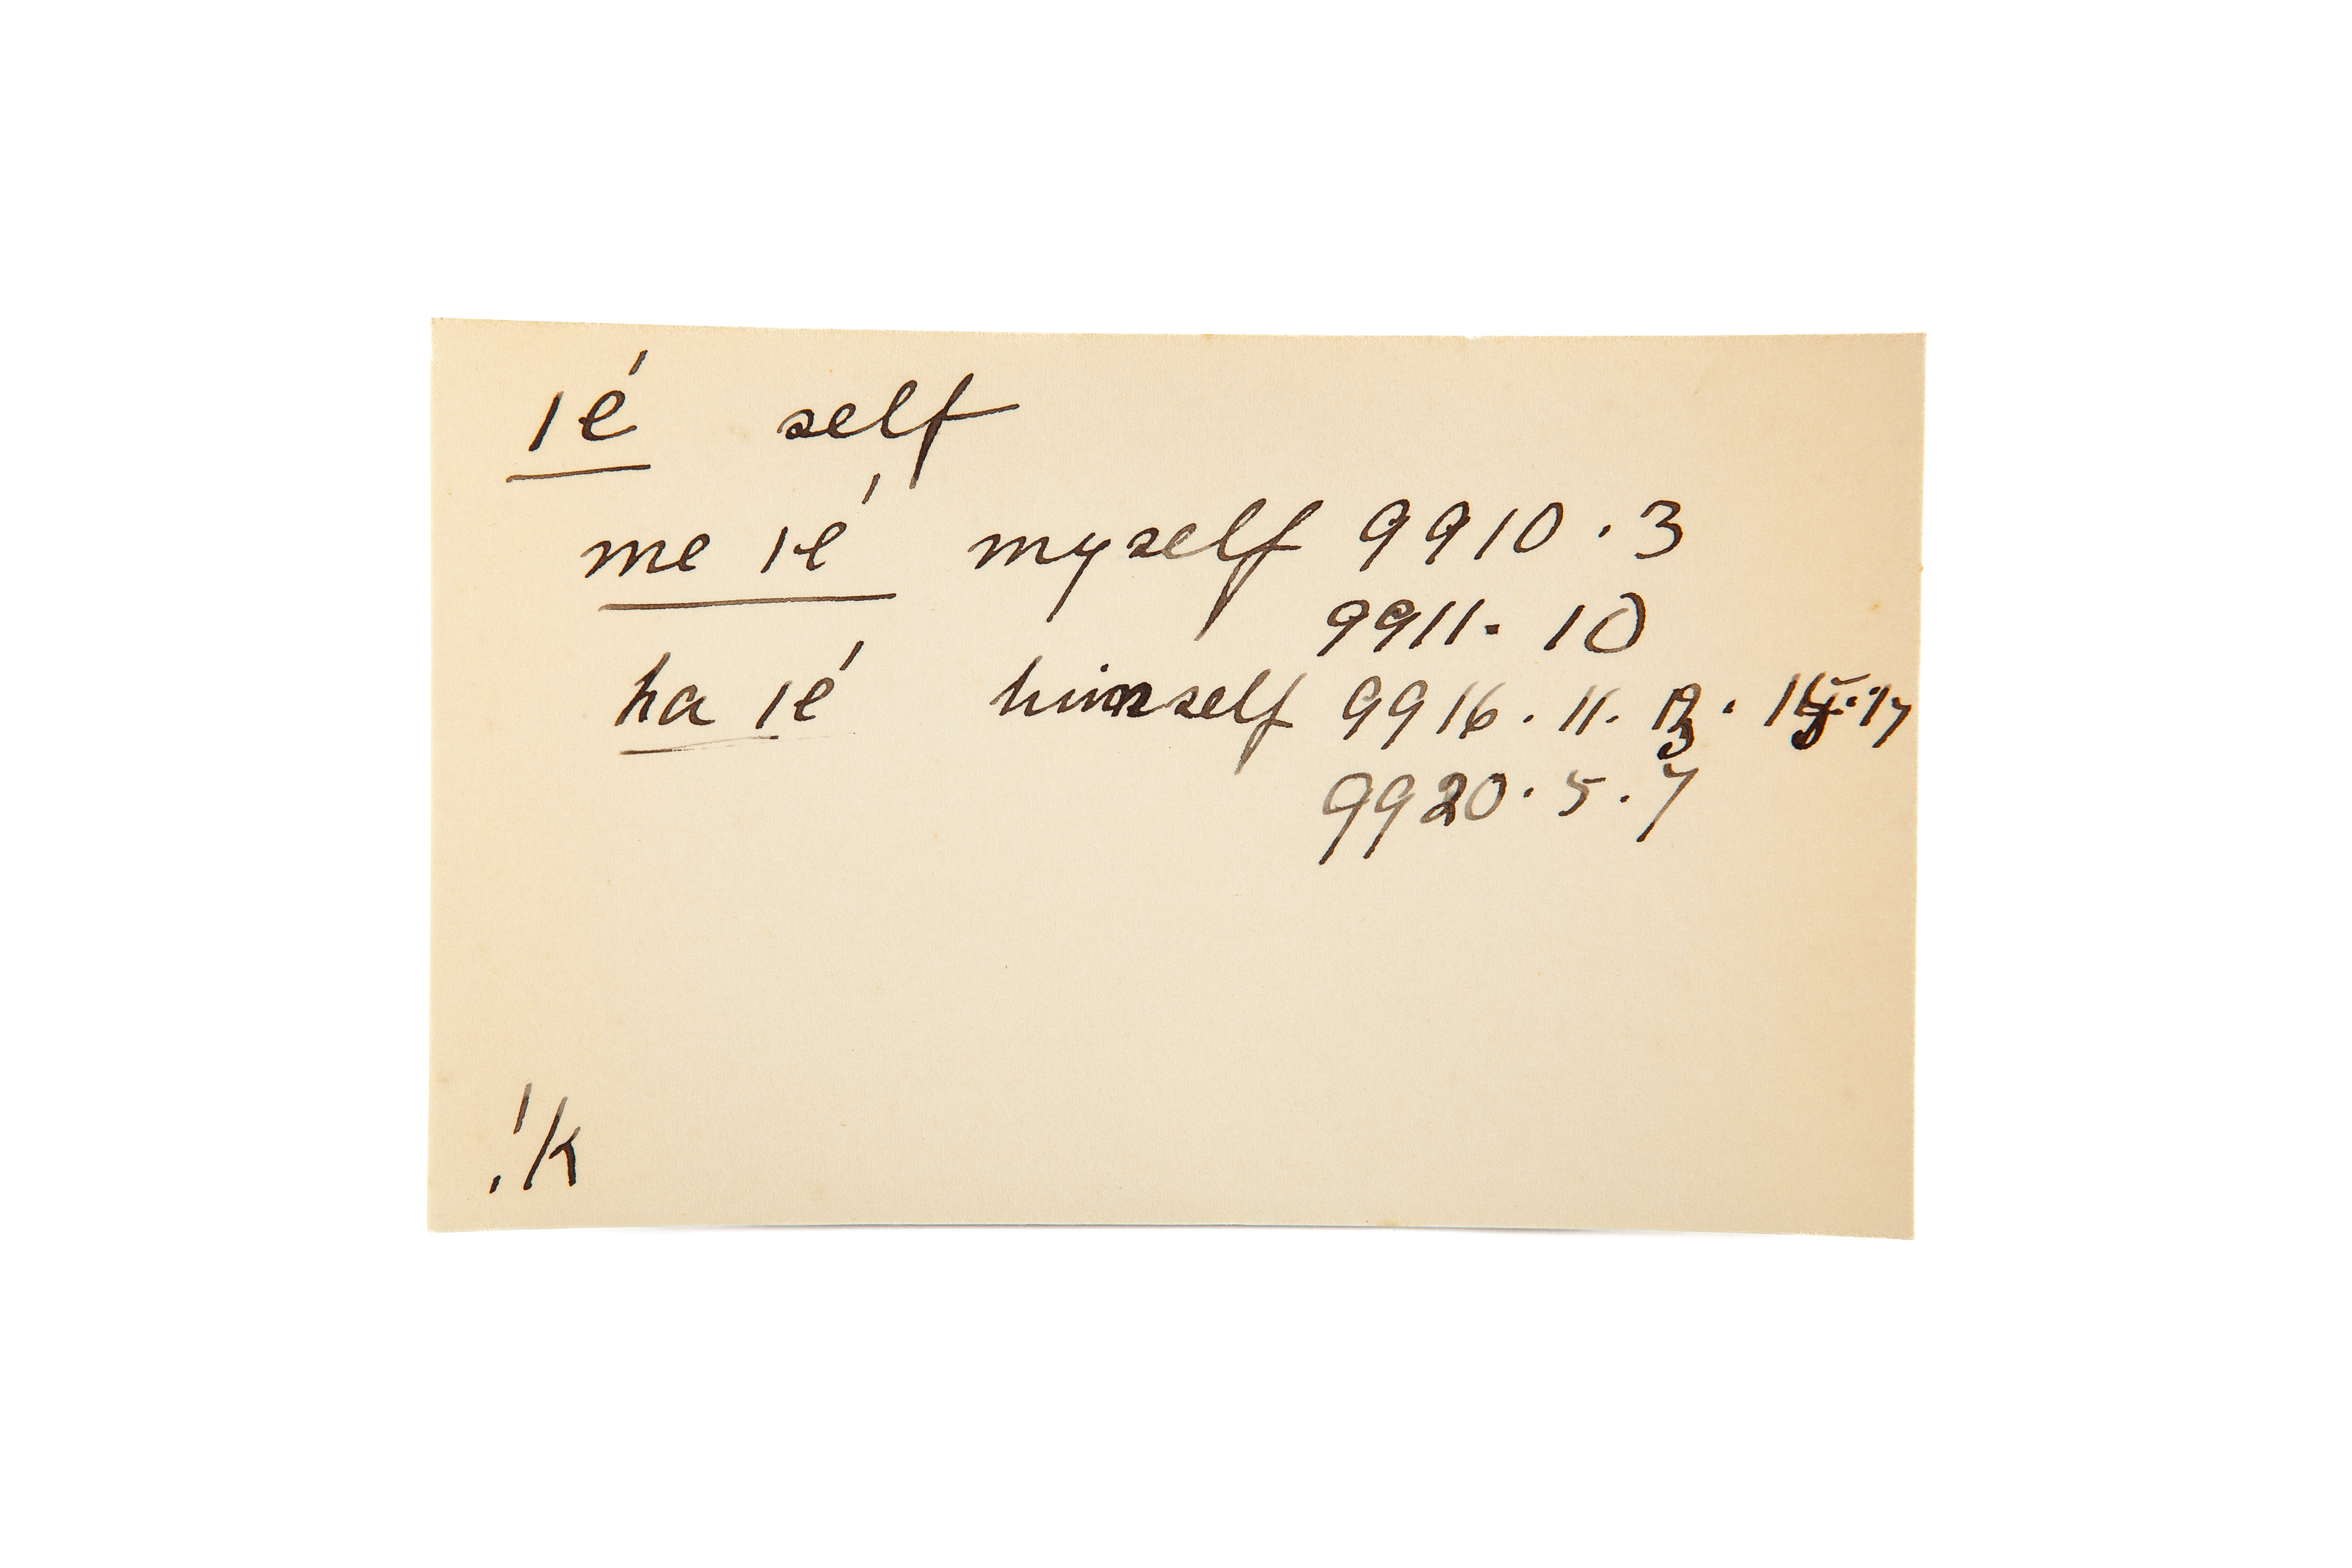 ıé self
me ıé myself 9910 · 3
9911 · 10
ha ıé himself 9916 · 11 · 13 · 15 · 17
9920 · 5 · 7
!k